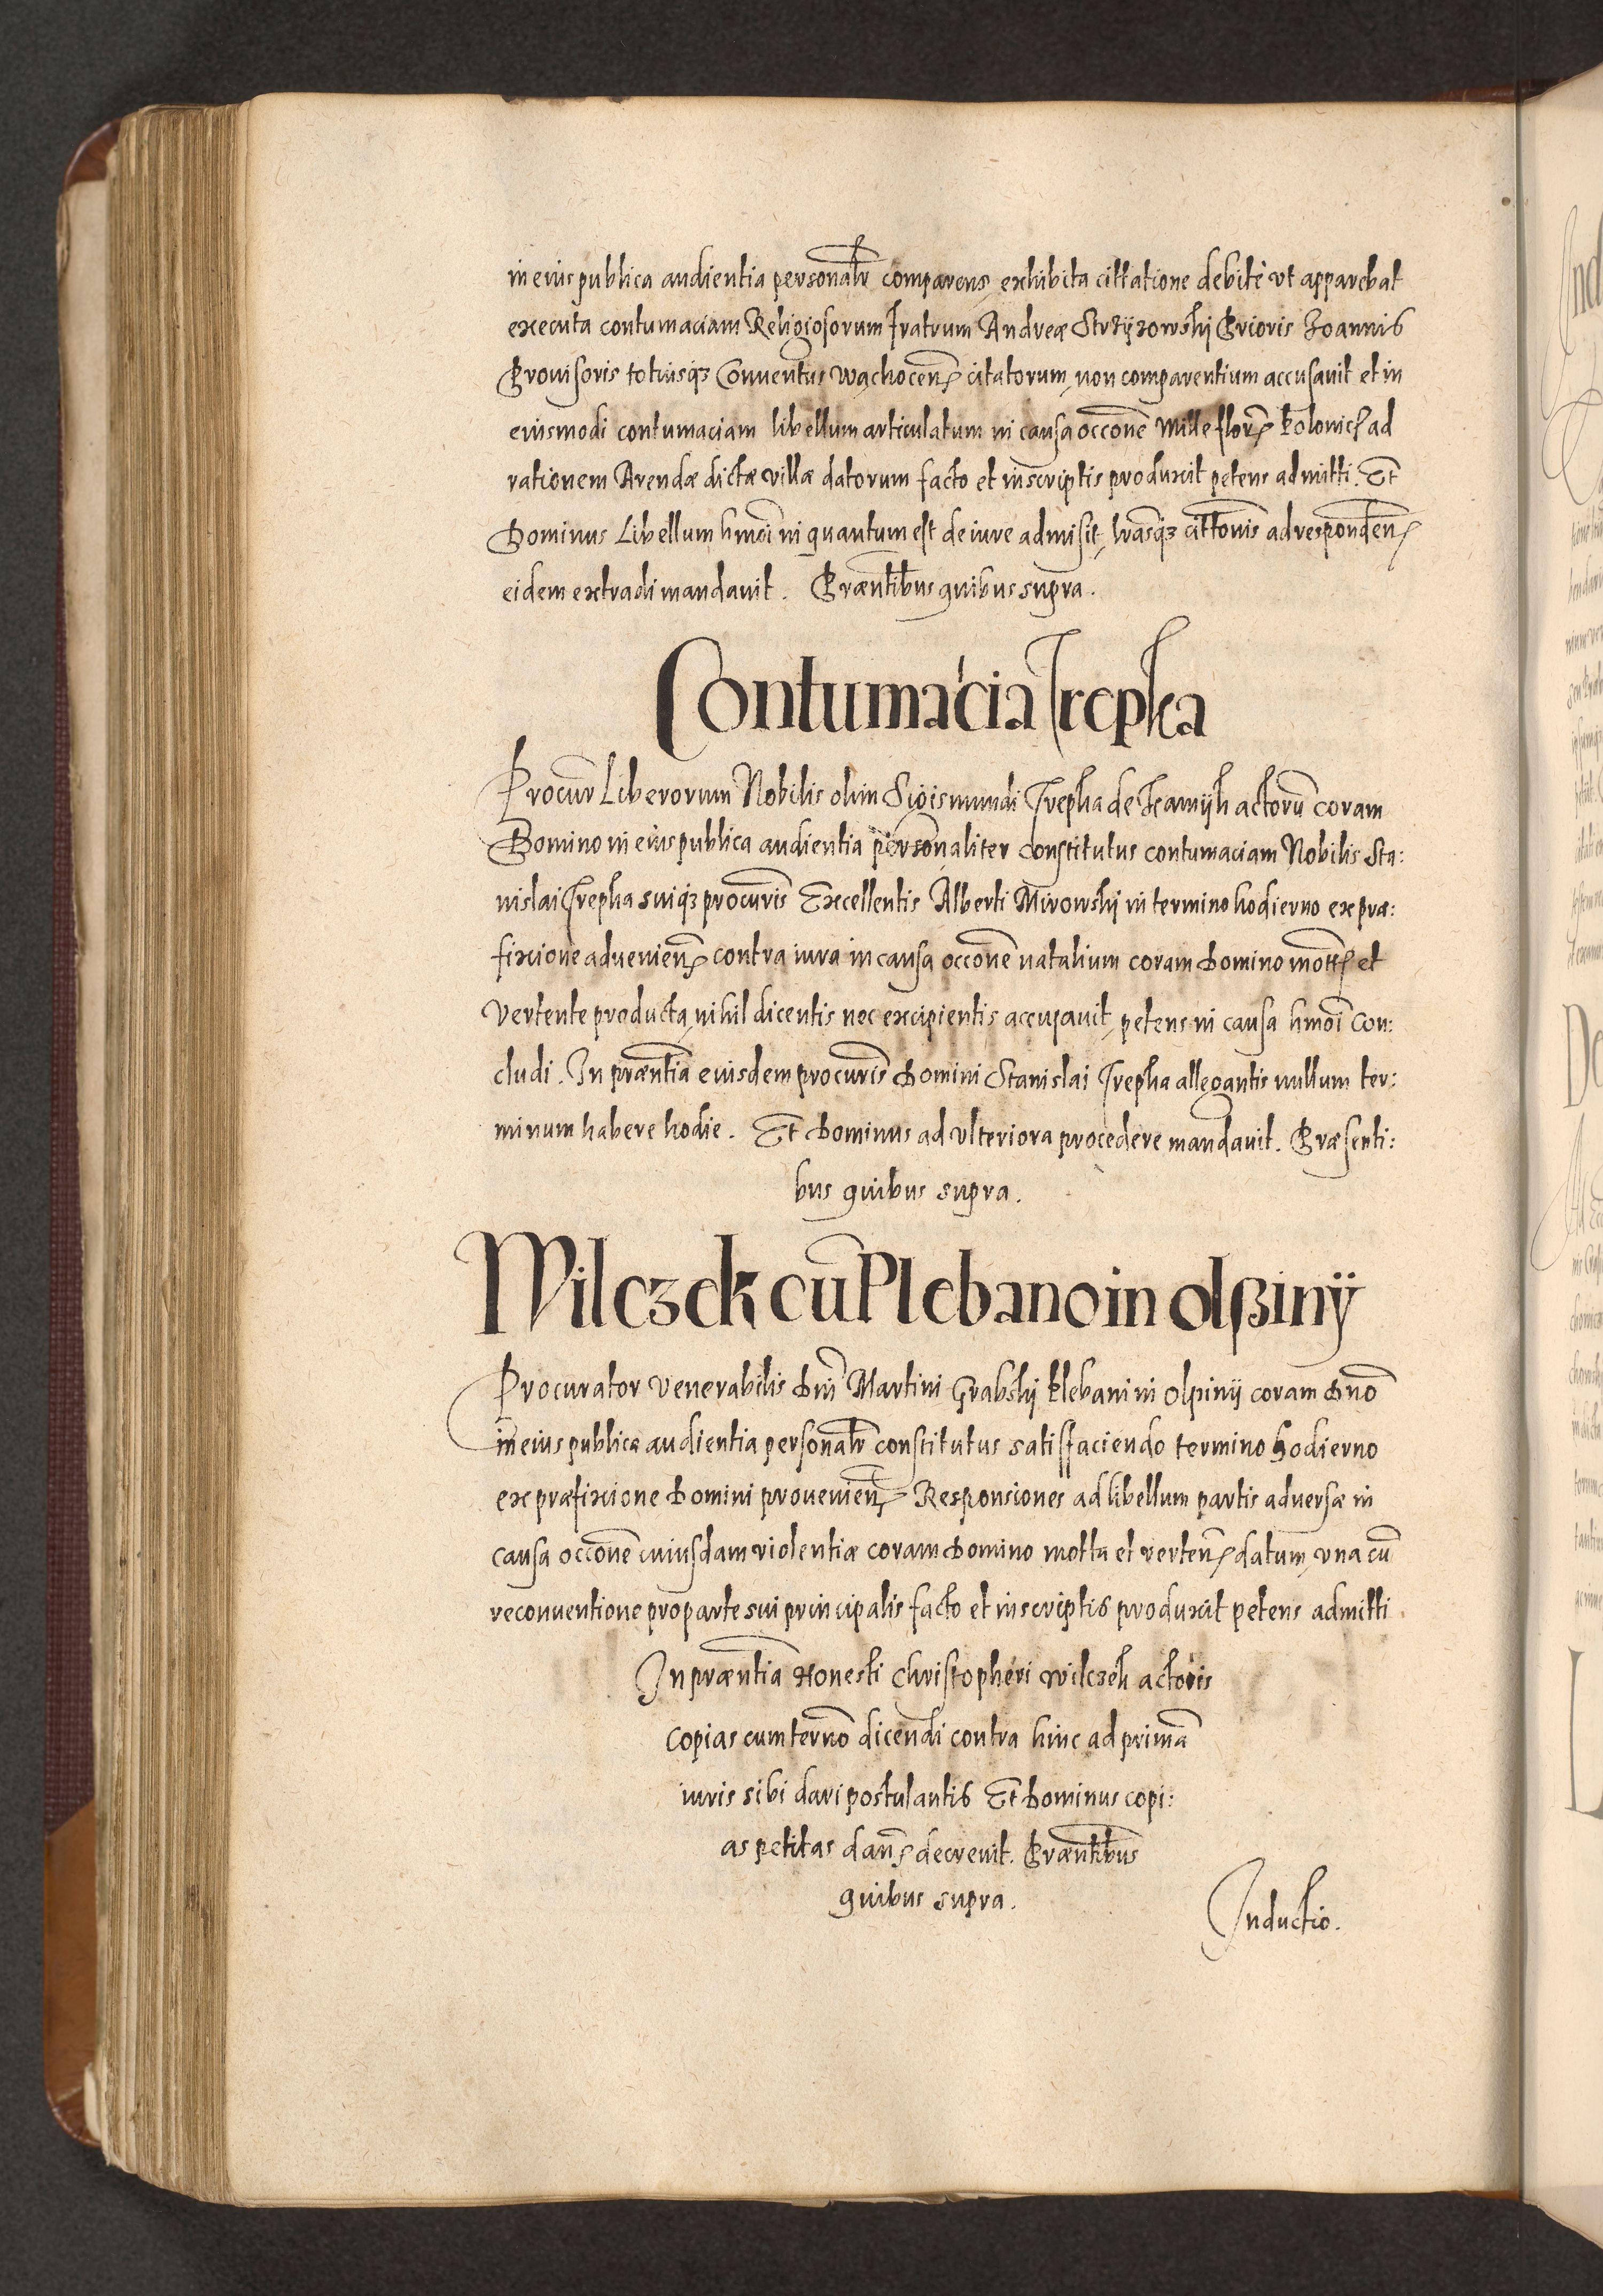 in eius publica audientia personalr comparens, exhibita cittatione debitè vt apparebat
executa contumaciam Religiosorum fratrum Andreæ Strzÿzowskÿ Prioris Joannis
Prouisoris totiusq3 Conuentus Wąchocen̄ citatorum, non comparentium accusauit et in
eiusmodi contumaciam libellum articulatum in causa occōne Mille floren̄ Polonic̄ ad
rationem Arendæ dictæ villæ datorum facto et in scriptis produxit petens admitti. Et
Dominus Libellum hmōi in quantum est de iure admisit, lrasq3 cittōnis ad responden̄
eidem extradi mandauit. Præntibus quibus supra.
Contumacia Trepka
Procur̄ Liberorum Nobilis olim Sigismundi Trepka de actorū coram
Domino in eius publica audientia personaliter constitutus contumaciam Nobilis Sta:
nislai Trepka suiq3 procuris Excellentis Alberti Mirowskÿ in termino hodierno ex præ:
fixione aduenien̄ contra iura in causa occōne natalium coram Domino mott̄ et
vertente producta, nihil dicentis nec excipientis accusauit, petens in causa hmōi con:
cludi. In præntia eiusdem procuris Domini Stanislai Trepka allegantis nullum ter:
minum habere hodie. Et Dominus ad vlteriora procedere mandauit. Præsenti:
bus quibus supra.
Wilczek cū Plebano in Olßinÿ
Procurator Venerabilis Dni Martini Grabskÿ Plebani in Olpinÿ coram Dnō
in eius publica audientia personalr constitutus satisfaciendo termino hodierno
ex præfixione Domini prouenien̄ Responsiones ad libellum partis aduersæ in
causa occōne cuiusdam violentiæ coram Domino motta et verten̄ datum, vna cū
reconuentione pro parte sui principalis facto et in scriptis produxit petens admitti
In præntia Honesti Christopheri Wilczek actoris
copias cum ternō dicendi contra hinc ad primā
iuris sibi dari postulantis Et Dominus copi:
as petitas dan̄ decreuit. Præntibus
quibus supra.
Inductio.